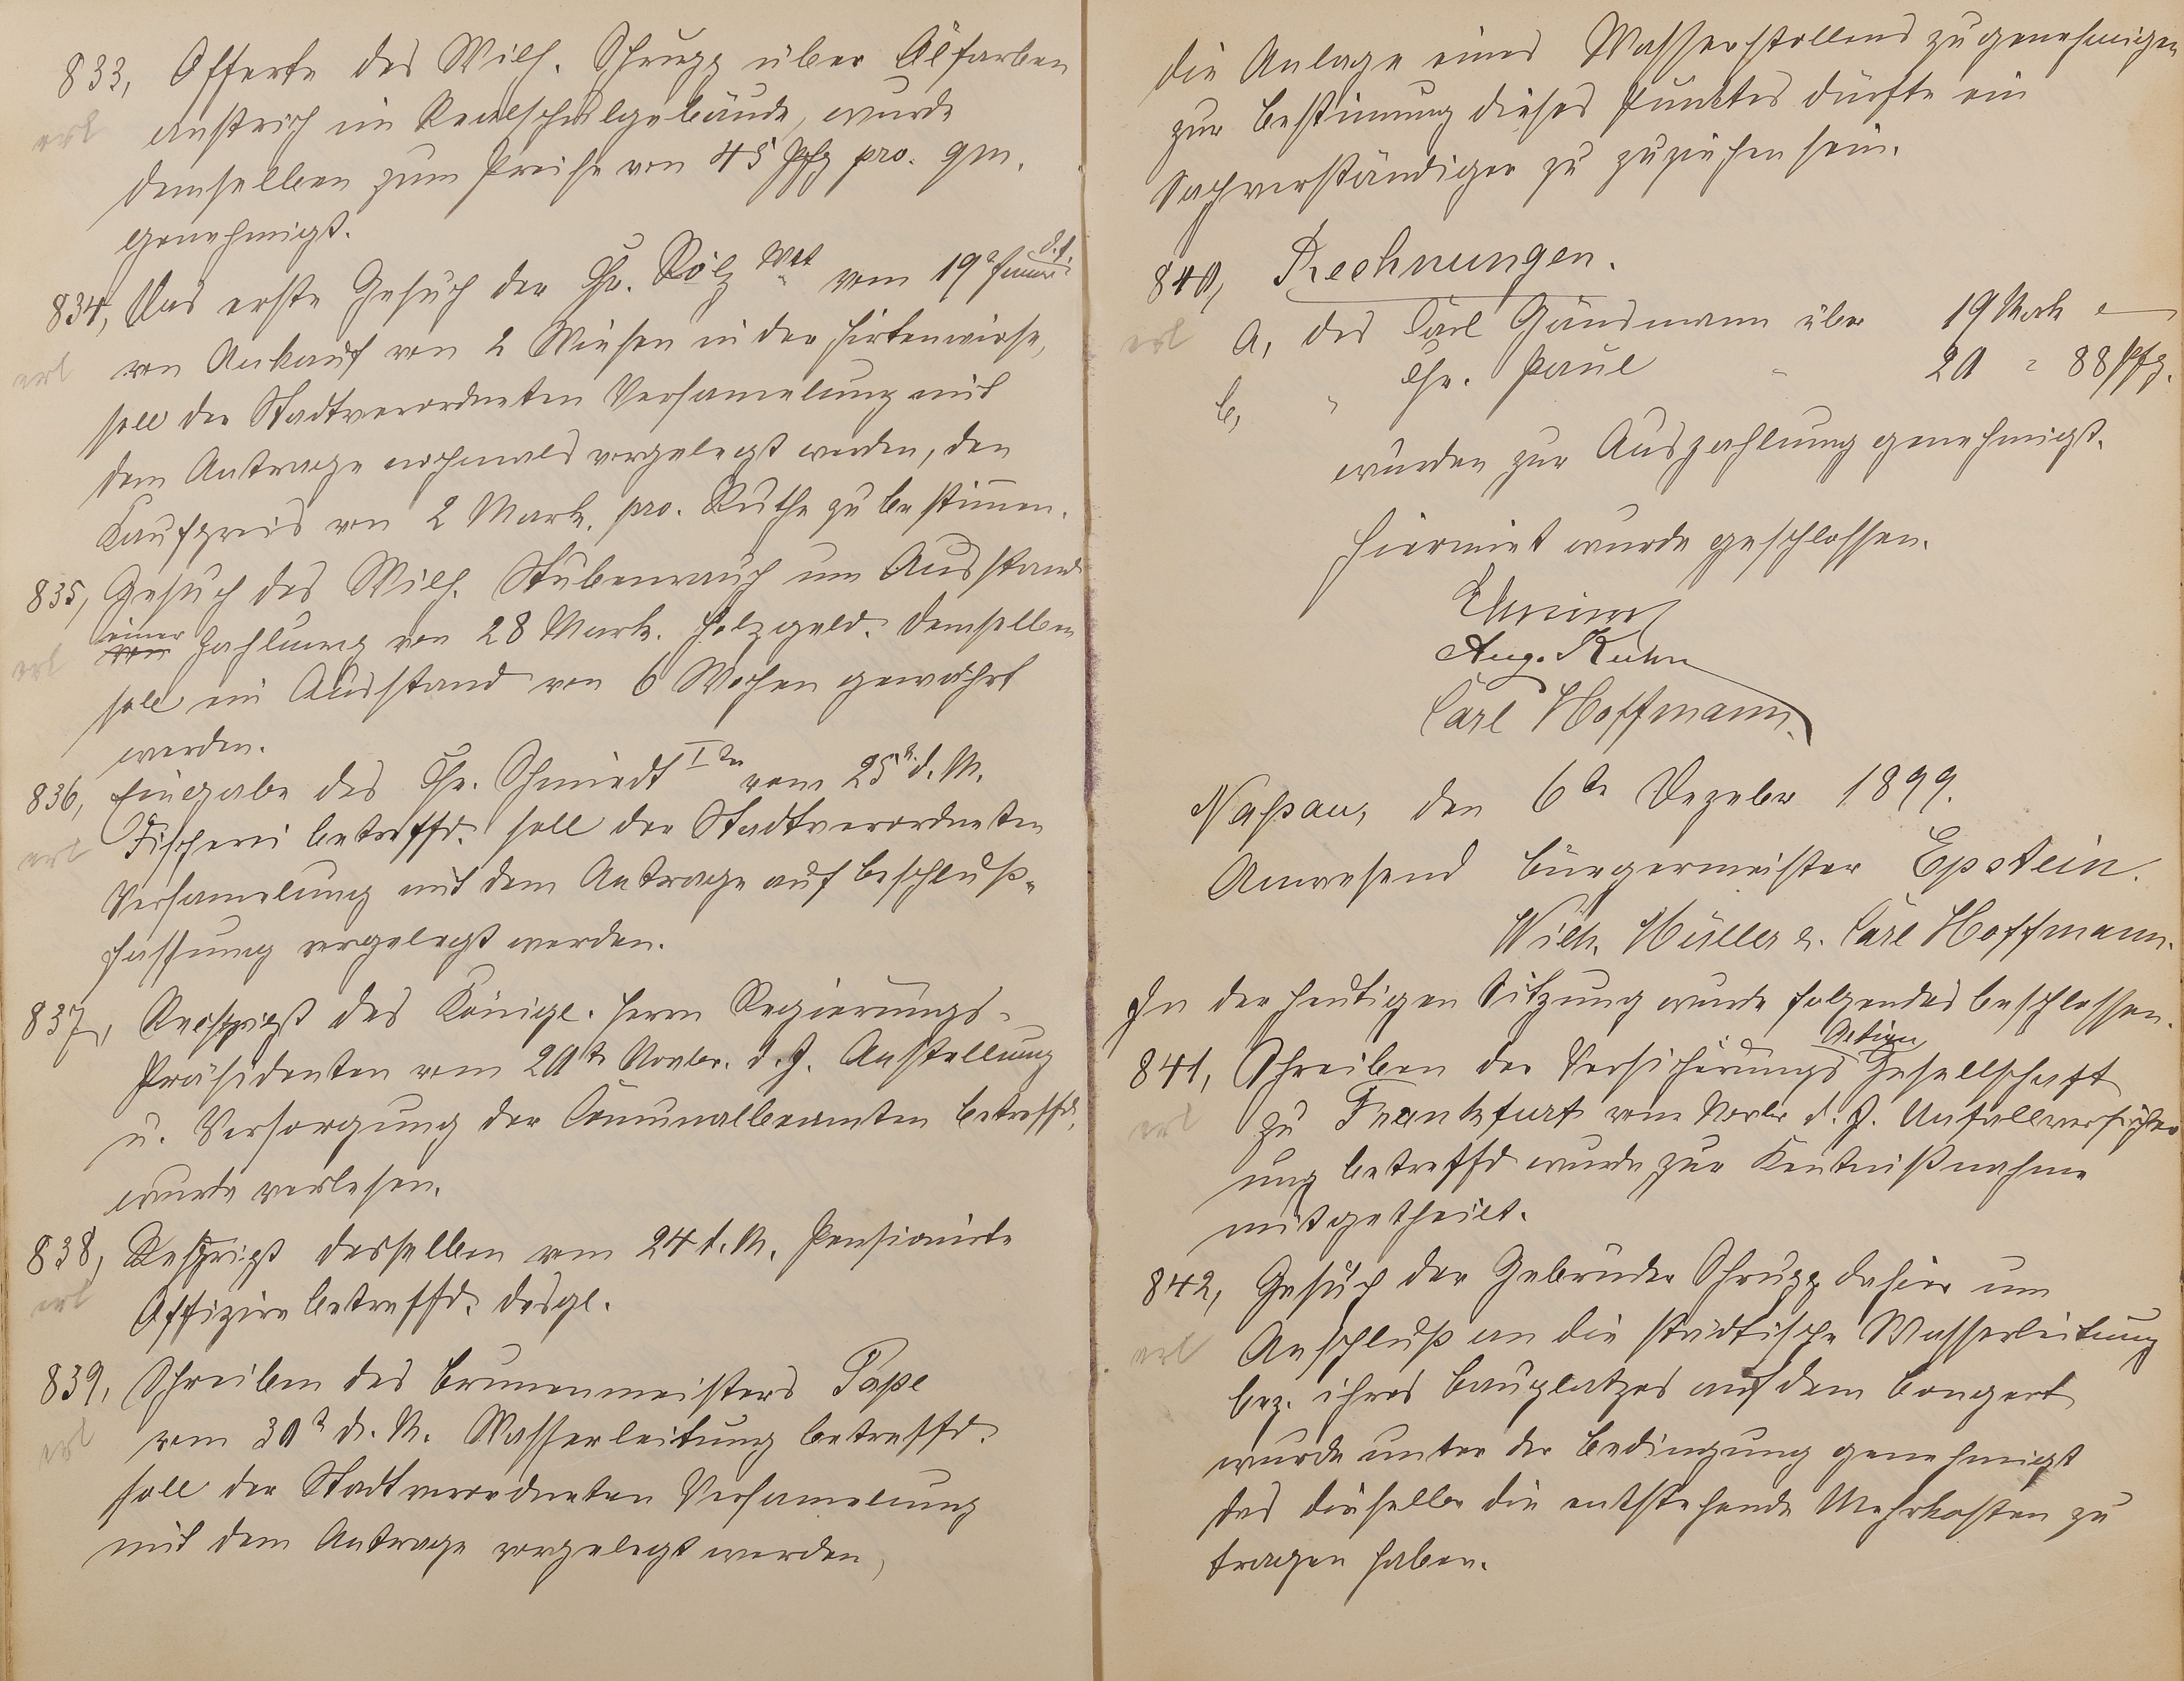 833, Offerte des Wilh. Schrupp über Ölfarben
erl anstrich im Realschulgebäude, wurde
demselben zum Preise von 45 Pfg pro. qm.
genehmigt.
834, Das erste Gesuch der Chr. Bölz Wtt vom 19t Januar d. J.
erl von Ankauf von 2 Wiesen in der Hirtenwiese,
soll der Stadtverordneten Versamelung mit
dem Antrage nochmals vorgelegt werden, den
Kaufpreis von 2 Mark. pro. Ruthe zu bestimen.
835, Gesuch des Wilh. Stubenrauch um Ausstand
erl einer Zahlung von 28 Mark. Holzgeld. Demselben
soll ein Ausstand von 6 Wochen gewährt
werden.
836, Eingabe des Chr. Schmidt Iter vom 25t d. M.
erl Fischerei betreffd. soll der Stadtverordneten
Versamelung mit dem Antrage auf Beschluß-
fassung vorgelegt werden.
837, Rescript des Königl. Herrn Regierungs-
Präsidenten vom 20te Novbr. d. J. Anstellung
u. Versorgung der Comunalbeamten betreffd.
wurde verlesen.
838, Rescript desselben vom 24 d. M. Pensionirte
erl Offizire betreffd. desgl.
839, Schreiben des Brunnenmeisters Pape
erl vom 30t d. M. Wasserleitung betreffd.
soll der Stadtverordneten Versamelung
mit dem Antrage vorgelegt werden,
die Anlage eines Wasserstollens zu genehmigen
zur Bestimung dieses Punktes dürfte ein
Sachverständiger zu zuziehen sein.
840, Rechnungen.
erl a, des Carl Gänsmann über 19 Mark —
b, " Chr. Paul " 20 " 88 Pfg.
wurden zur Auszahlung genehmigt.
Hiermit wurde geschlossen.
Aug. Kuhn
Carl Hoffmann.
Naßau, den 6te Dezebr 1899.
Anwesend Bürgermeister Epstein.
Wilh. Müller u. Carl Hoffmann.
In der heutigen Sitzung wurde folgendes beschlossen.
841, Schreiben der Versicherungs Actien Gesellschaft
erl zu Frankfurt vom Novbr d. J. Unfallversicher
ung betreffd wurde zur Kentnißnahme
mitgetheilt.
842, Gesuch der Gebrüder Schrupp dahier um
erl Anschluß an die städtische Wasserleitung
bez. ihres Bauplatzes auf dem Bongert
wurde unter der Bedingung genehmigt
das dieselbe die entstehende Mehrkosten zu
tragen haben.